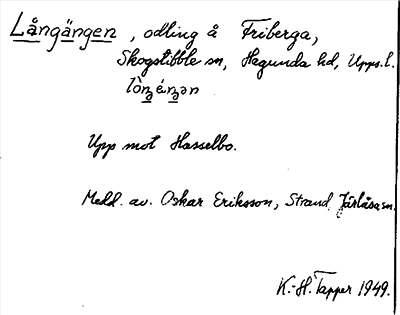 Långängen, odling å Friberga,
Skogstibble sn, Hagunda hd, Upps. l.
lòŋéŋən
Upp mot Hasselbo.
Medd. av. Oskar Eriksson, Strand, Järlåsa sn.
K.-H. Tapper 1949.